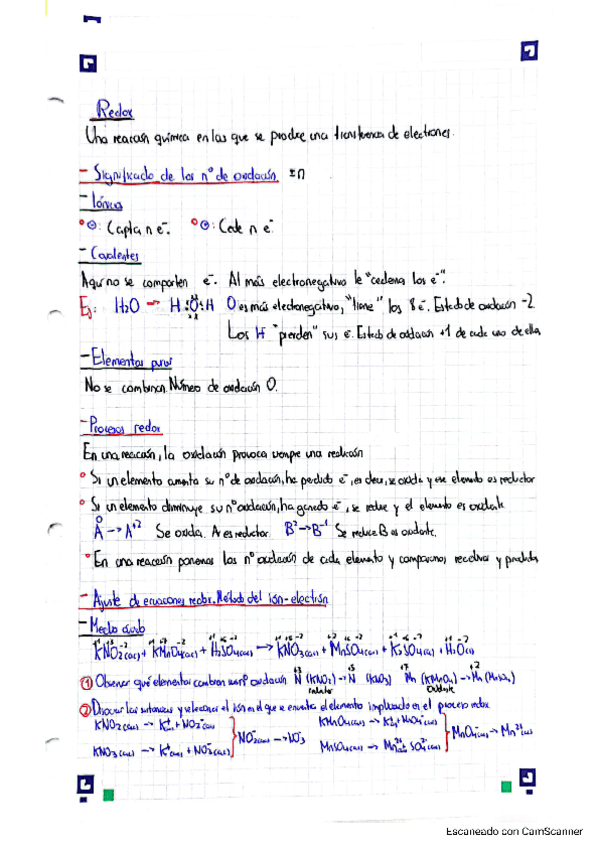 Redox
Una reacción química en las que se produce una transferencia de electrones.
- Significado de los nº de oxidación ±n
- Iónicos
⊖: Capta n e⁻. ⊕: Cede n e⁻.
- Covalentes
Aquí no se comparten e⁻. Al más electronegativo le "cederá los e⁻".
Ej: H₂O → H:O:H O es más electronegativo, "tiene" los 8 e⁻. Estado de oxidación -2
Los H "pierden" sus e⁻. Estado de oxidación +1 de cada uno de ellos
- Elementos puros
No se combinan. Número de oxidación 0.
- Procesos redox
En una reacción, la oxidación provoca siempre una reducción
Si un elemento aumenta su nº de oxidación, ha perdido e⁻, es decir, se oxida y ese elemento es reductor
Si un elemento disminuye su nº oxidación, ha ganado e⁻, se reduce y el elemento es oxidante
A⁰ → A⁺² Se oxida. A es reductor. B² → B⁻¹ Se reduce B es oxidante.
En una reacción ponemos los nº oxidación de cada elemento y comparamos reactivos y productos
- Ajuste de ecuaciones redox. Método del ión-electrón
- Medio ácido
KNO₂(ac) + KMnO₄(ac) + H₂SO₄(ac) → KNO₃(ac) + MnSO₄(ac) + K₂SO₄(ac) + H₂O(l)
① Observar qué elementos cambian su nº oxidación N⁺³ (KNO₂) → N⁺⁵ (KNO₃) Mn⁺⁷ (KMnO₄) → Mn⁺² (MnSO₄)
Oxidante
② Disociar las sustancias y seleccionar el ión en el que se encuentra el elemento implicado en el proceso redox
KNO₂(ac) → K⁺(ac) + NO₂⁻(ac) KMnO₄(ac) → K⁺(ac) + MnO₄⁻(ac)
NO₂⁻(ac) → NO₃⁻ MnO₄⁻(ac) → Mn²⁺(ac)
KNO₃(ac) → K⁺(ac) + NO₃⁻(ac) MnSO₄(ac) → Mn²⁺(ac) SO₄²⁻(ac)
Escaneado con CamScanner